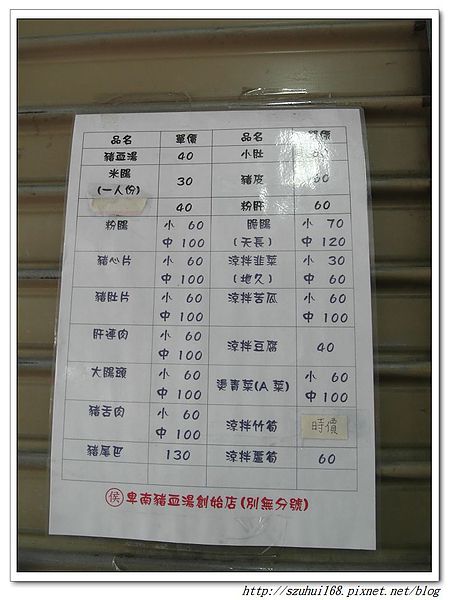 品名 單價 品名 單價
豬血湯 40 小肚
米腸 30 豬皮 60
(一人份)
40 粉肝 60
粉腸 小 60 脆腸 小 70
中 100 (天長) 中 120
豬心片 小 60 涼拌韭菜 小 30
中 100 (地久) 中 60
豬肚片 小 60 涼拌苦瓜 小 60
中 100 中 100
肝連肉 小 60 涼拌豆腐 40
中 100
大腸頭 小 60 燙青菜(A菜) 小 60
中 100 中 100
豬舌肉 小 60 涼拌竹筍 時價
中 100
豬尾巴 130 涼拌蘆筍 60
侯 卑南豬血湯創始店(別無分號)
http://szuhui168.pixnet.net/blog